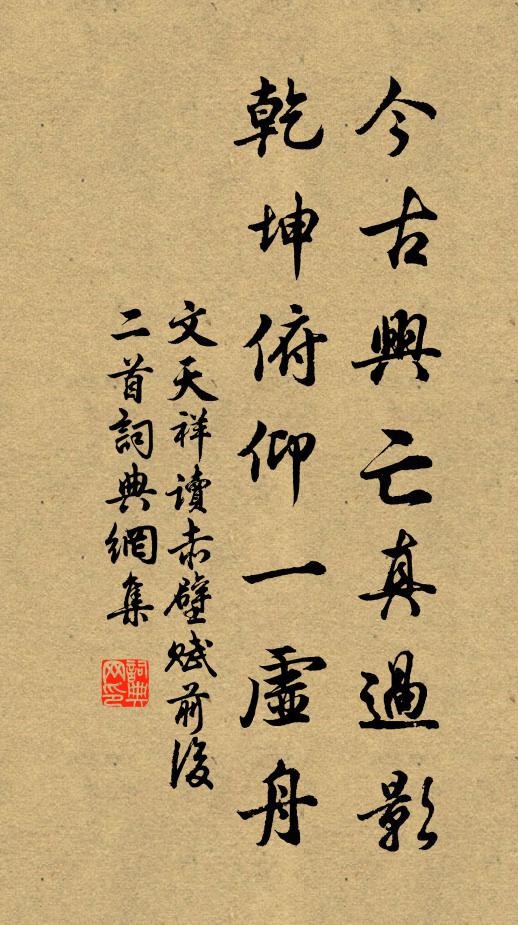 今古興亡真過影
乾坤俯仰一虛舟
文天祥讀赤壁賦前後
二首詞典網集
詞典
网印